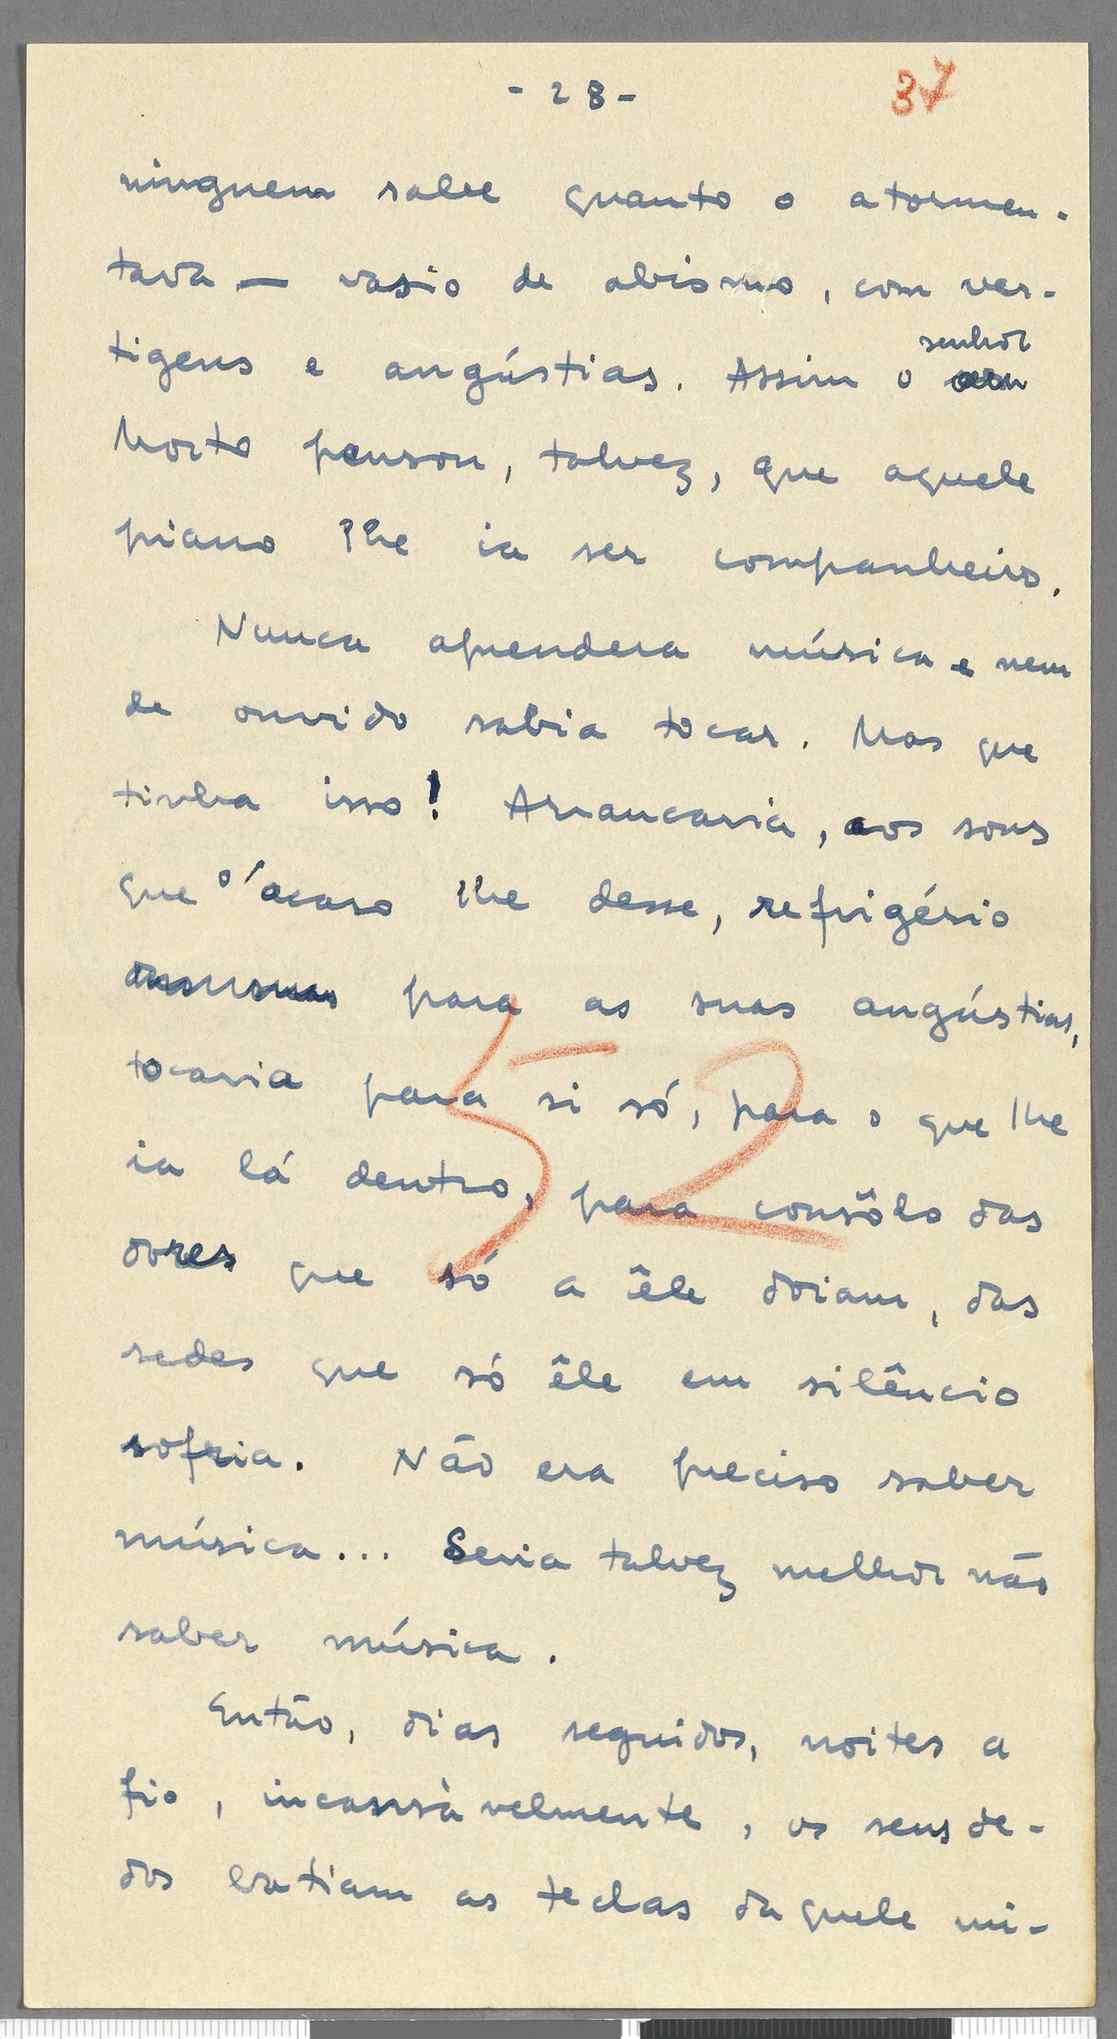 - 28 -
37
ninguem sabe quanto o atormen-
tava — vasio de abismo, com ver-
tigens e angústias. Assim o senhor
Morto pensou, talvez, que aquele
piano lhe ia ser companheiro.
Nunca aprendera música e nem
de ouvido sabia tocar. Mas que
tinha isso! Arrancaria, aos sons
que o acaso lhe desse, refrigério
para as suas angústias,
52
tocaria para si só, para o que lhe
ia lá dentro, para consôlo das
dores que só a êle doiam, das
sedes que só êle em silêncio
sofria. Não era preciso saber
música... Seria talvez melhor não
saber música.
Então, dias seguidos, noites a
fio, incansàvelmente, os seus de-
dos batiam as teclas daquele mi-